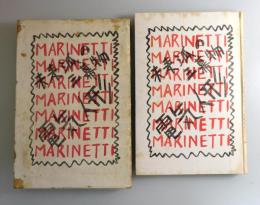 MARINETTI
MARINETTI
MARINETTI
MARINETTI
MARINETTI
MARINETTI
MARINETTI
未来派の
三幕物
電気人形
MARINETTI
MARINETTI
MARINETTI
MARINETTI
MARINETTI
MARINETTI
MARINETTI
未来派の
三幕物
電気人形